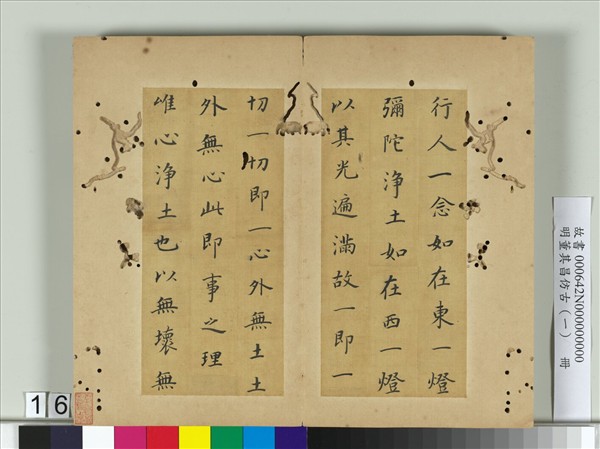 行人一念如在東一燈
彌陀淨土如在西一燈
以其光遍滿故一即一
切一切即一心外無土土
外無心此即事之理
唯心淨土也以無壞無
故書 000642N000000000
明董其昌仿古（一） 冊
16